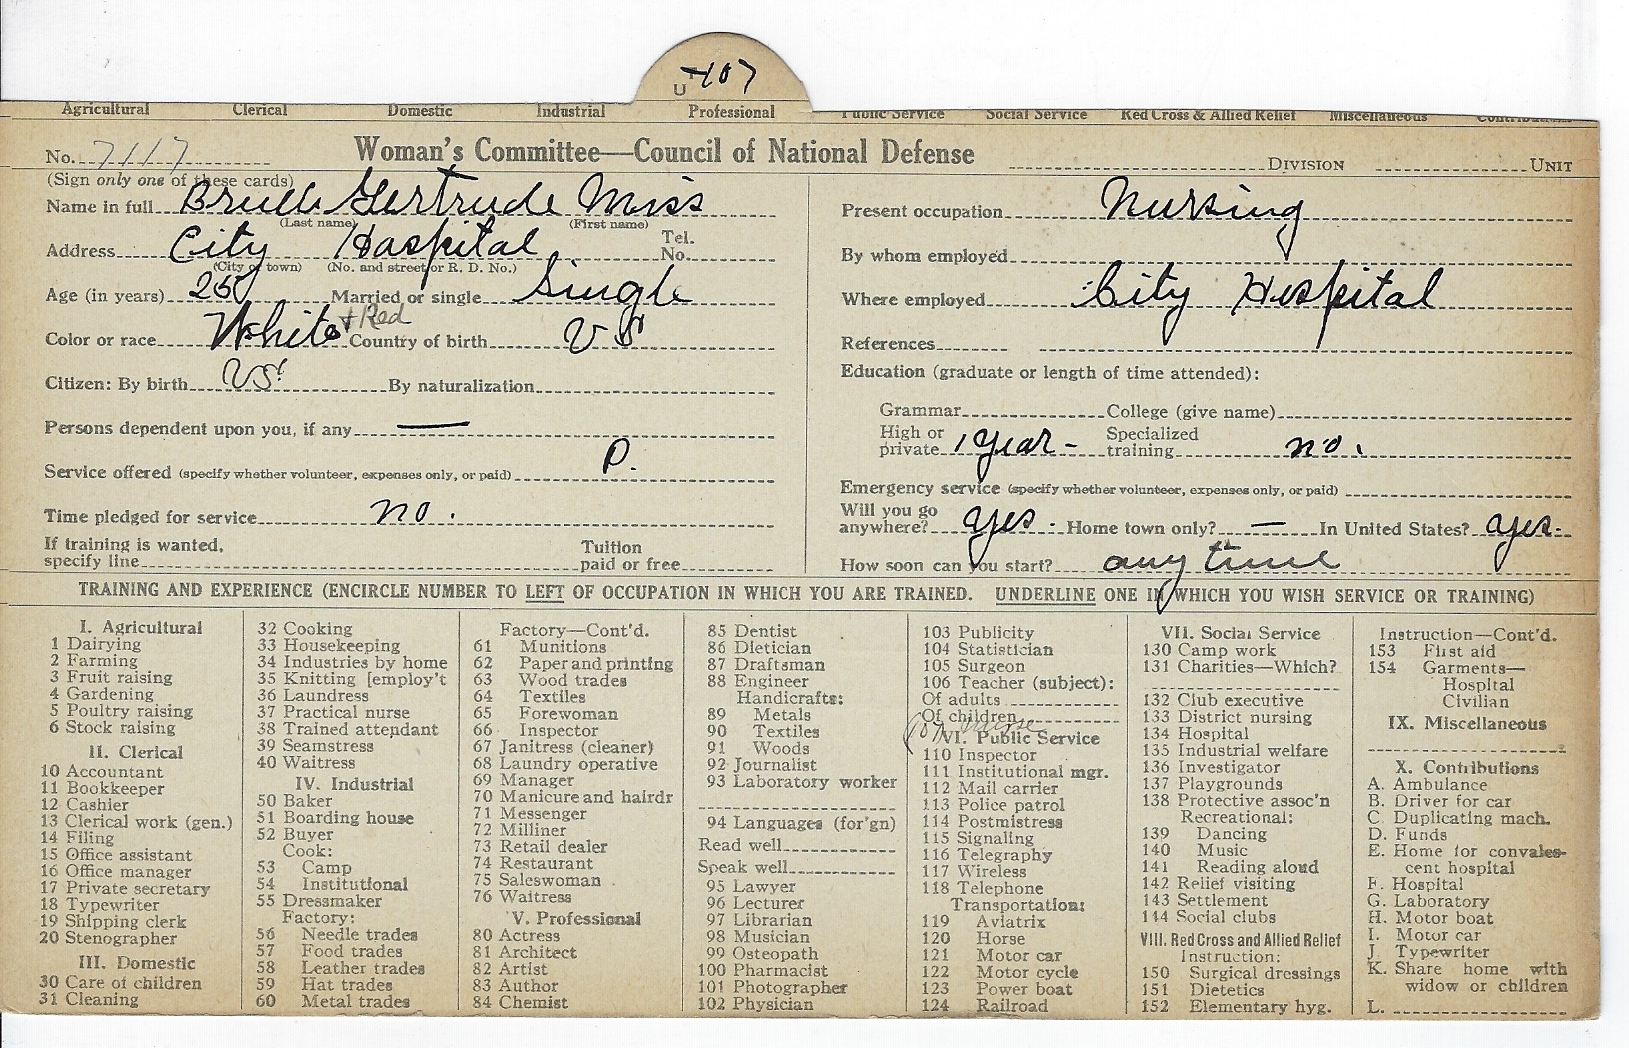 U 107
Agricultural Clerical Domestic Industrial Professional Public Service Social Service Red Cross & Allied Relief Miscellaneous Contributions
No. 7117 Woman's Committee—Council of National Defense DIVISION UNIT
(Sign only one of these cards)
Name in full Gertrude Miss
(Last name) (First name)
Address City Hospital Tel. No.
(City or town) (No. and street or R. D. No.)
Age (in years) 25 Married or single Single
Color or race White + Red Country of birth US
Citizen: By birth US By naturalization
Persons dependent upon you, if any —
Service offered (specify whether volunteer, expenses only, or paid) P.
Time pledged for service no.
If training is wanted, specify line Tuition paid or free
Present occupation Nursing
By whom employed
Where employed City Hospital
References
Education (graduate or length of time attended):
Grammar College (give name)
High or private 1 year - Specialized training no.
Emergency service (specify whether volunteer, expenses only, or paid)
Will you go anywhere? yes. Home town only? — In United States? yes.
How soon can you start? any time
TRAINING AND EXPERIENCE (ENCIRCLE NUMBER TO LEFT OF OCCUPATION IN WHICH YOU ARE TRAINED. UNDERLINE ONE IN WHICH YOU WISH SERVICE OR TRAINING)
I. Agricultural
1 Dairying
2 Farming
3 Fruit raising
4 Gardening
5 Poultry raising
6 Stock raising
II. Clerical
10 Accountant
11 Bookkeeper
12 Cashier
13 Clerical work (gen.)
14 Filing
15 Office assistant
16 Office manager
17 Private secretary
18 Typewriter
19 Shipping clerk
20 Stenographer
III. Domestic
30 Care of children
31 Cleaning
32 Cooking
33 Housekeeping
34 Industries by home
35 Knitting [employ't
36 Laundress
37 Practical nurse
38 Trained attendant
39 Seamstress
40 Waitress
IV. Industrial
50 Baker
51 Boarding house
52 Buyer
Cook:
53 Camp
54 Institutional
55 Dressmaker
Factory:
56 Needle trades
57 Food trades
58 Leather trades
59 Hat trades
60 Metal trades
Factory—Cont'd.
61 Munitions
62 Paper and printing
63 Wood trades
64 Textiles
65 Forewoman
66 Inspector
67 Janitress (cleaner)
68 Laundry operative
69 Manager
70 Manicure and hairdr
71 Messenger
72 Milliner
73 Retail dealer
74 Restaurant
75 Saleswoman
76 Waitress
V. Professional
80 Actress
81 Architect
82 Artist
83 Author
84 Chemist
85 Dentist
86 Dietician
87 Draftsman
88 Engineer
Handicrafts:
89 Metals
90 Textiles
91 Woods
92 Journalist
93 Laboratory worker
94 Languages (for'gn)
Read well
Speak well
95 Lawyer
96 Lecturer
97 Librarian
98 Musician
99 Osteopath
100 Pharmacist
101 Photographer
102 Physician
103 Publicity
104 Statistician
105 Surgeon
106 Teacher (subject):
Of adults
Of children
107 Nurse
VI. Public Service
110 Inspector
111 Institutional mgr.
112 Mail carrier
113 Police patrol
114 Postmistress
115 Signaling
116 Telegraphy
117 Wireless
118 Telephone
Transportation:
119 Aviatrix
120 Horse
121 Motor car
122 Motor cycle
123 Power boat
124 Railroad
VII. Social Service
130 Camp work
131 Charities—Which?
132 Club executive
133 District nursing
134 Hospital
135 Industrial welfare
136 Investigator
137 Playgrounds
138 Protective assoc'n
Recreational:
139 Dancing
140 Music
141 Reading aloud
142 Relief visiting
143 Settlement
144 Social clubs
VIII. Red Cross and Allied Relief
Instruction:
150 Surgical dressings
151 Dietetics
152 Elementary hyg.
Instruction—Cont'd.
153 First aid
154 Garments—
Hospital
Civilian
IX. Miscellaneous
X. Contributions
A. Ambulance
B. Driver for car
C. Duplicating mach.
D. Funds
E. Home for convales-
cent hospital
F. Hospital
G. Laboratory
H. Motor boat
I. Motor car
J. Typewriter
K. Share home with
widow or children
L.